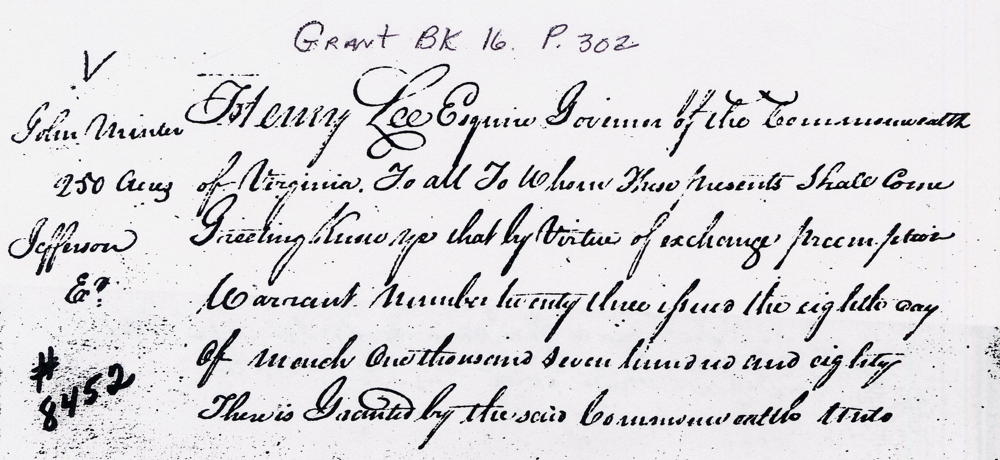 GRANT BK 16. P. 302
John Minter
250 Acres
Jefferson
Exd
#
8452
Henry Lee Esquire Governor of the Commonwealth
of Virginia. To all To Whom These presents Shall Come
Greeting Know ye that by Virtue of exchange preemption
Warrant Number twenty three issued the eighth day
of March One thousand seven hundred and eighty
There is Granted by the said Commonwealth Unto